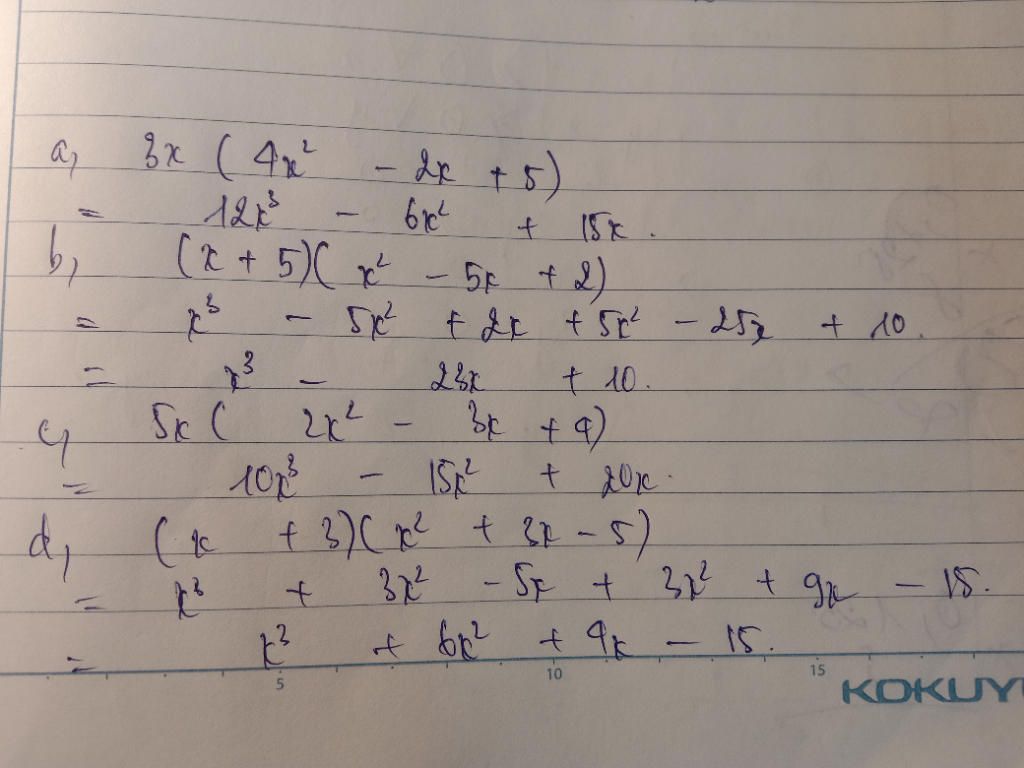 a, 3x ( 4x² - 2x + 5)
= 12x³ - 6x² + 15x.
b, (x + 5)( x² - 5x + 2)
= x³ - 5x² + 2x + 5x² - 25x + 10.
= x³ - 23x + 10.
c, 5x ( 2x² - 3x + 4)
= 10x³ - 15x² + 20x.
d, (x + 3)( x² + 3x - 5)
= x³ + 3x² - 5x + 3x² + 9x - 15.
= x³ + 6x² + 4x - 15.
5 10 15
KOKUY